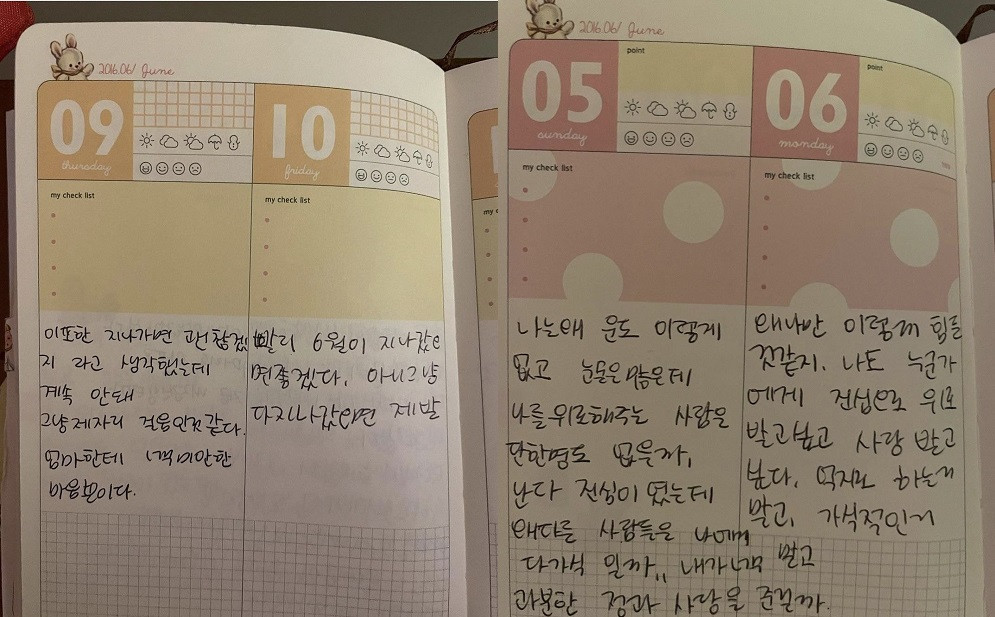 2016.06/ June
09
thursday
my check list
이또한 지나가면 괜찮겠
지 라고 생각했는데
계속 안돼
그냥 제자리 걸음인것 같다.
엄마한테 너무 미안한
마음뿐이다.
10
friday
my check list
빨리 6월이 지나갔으
면좋겠다. 아니그냥
다지나갔으면 제발
2016.06/ June
05
sunday
point
my check list
나는왜 운도 이렇게
없고 눈물은많은데
나를위로해주는 사람은
단한명도 없을까,
난다 진심이 였는데
왜다른 사람들은 나에게
다가식 일까,, 내가너무 많고
과분한 정과 사랑을 준걸까.
06
monday
point
my check list
왜나만 이렇게 힘들
것같지. 나도 누군가
에게 진심으로 위로
받고싶고 사랑 받고
싶다. 억지로 하는거
말고, 가식적인거